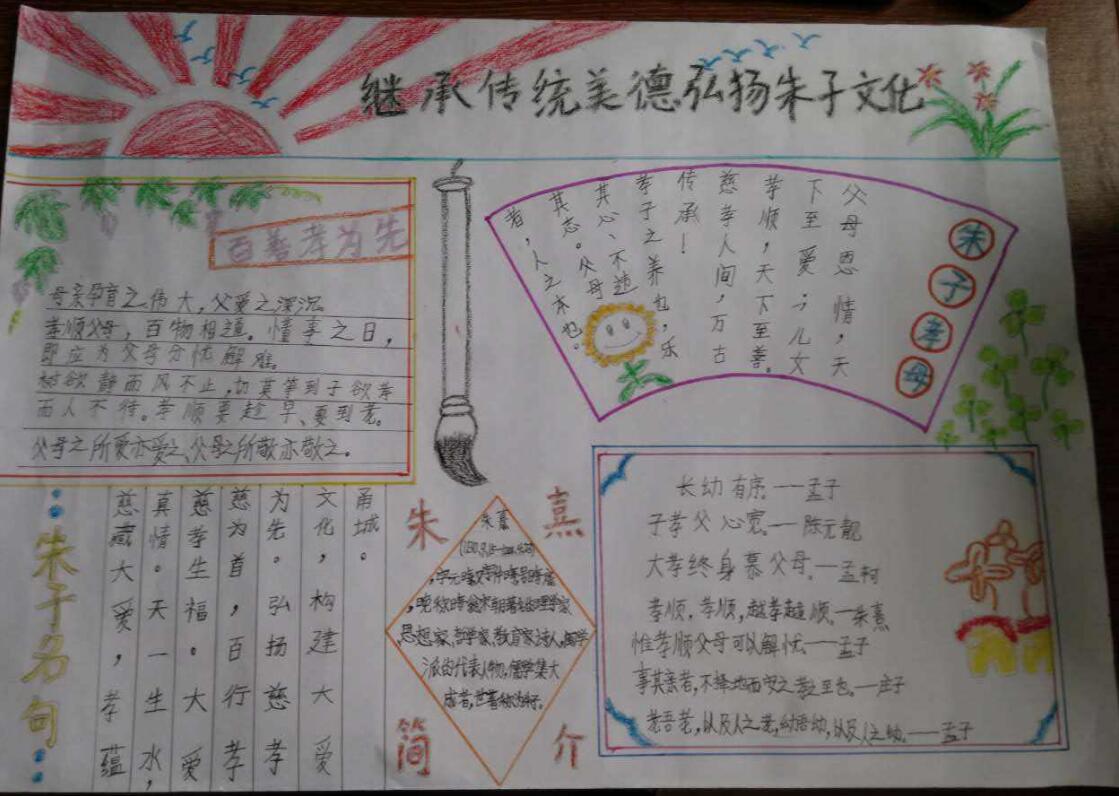 继承传统美德弘扬朱子文化
百善孝为先
母亲孕育之伟大，父爱之深沉。
孝顺父母，百物相随。懂事之日，
即应为父母分忧解难。
树欲静而风不止，切莫等到子欲孝
而人不待。孝顺要趁早、要到老。
父母之所爱亦爱之、父母之所敬亦敬之。
朱子孝母
父母恩情，天
下至爱；儿女
孝顺，天下至善。
慈孝人间，万古
传承！
孝子之养也，乐
其心、不违
其志。父母
者，人之本也。
朱子名句
慈藏大爱，孝蕴
真情。天一生水，
慈孝生福。大爱
慈为首，百行孝
为先。弘扬慈孝
文化，构建大爱
甬城。
朱熹简介
朱熹
，字元晦，又字仲晦，号晦庵
，晚称晦翁，宋朝著名的理学家
思想家、哲学家、教育家、诗人，闽学
派的代表人物，儒学集大
成者，世尊称为朱子。
长幼有序。——孟子
子孝父心宽。——陈元靓
大孝终身慕父母。——孟轲
孝顺，孝顺，越孝越顺。——朱熹
惟孝顺父母可以解忧——孟子
事其亲者，不择地而安之，孝之至也。——庄子
老吾老，以及人之老，幼吾幼，以及人之幼。——孟子